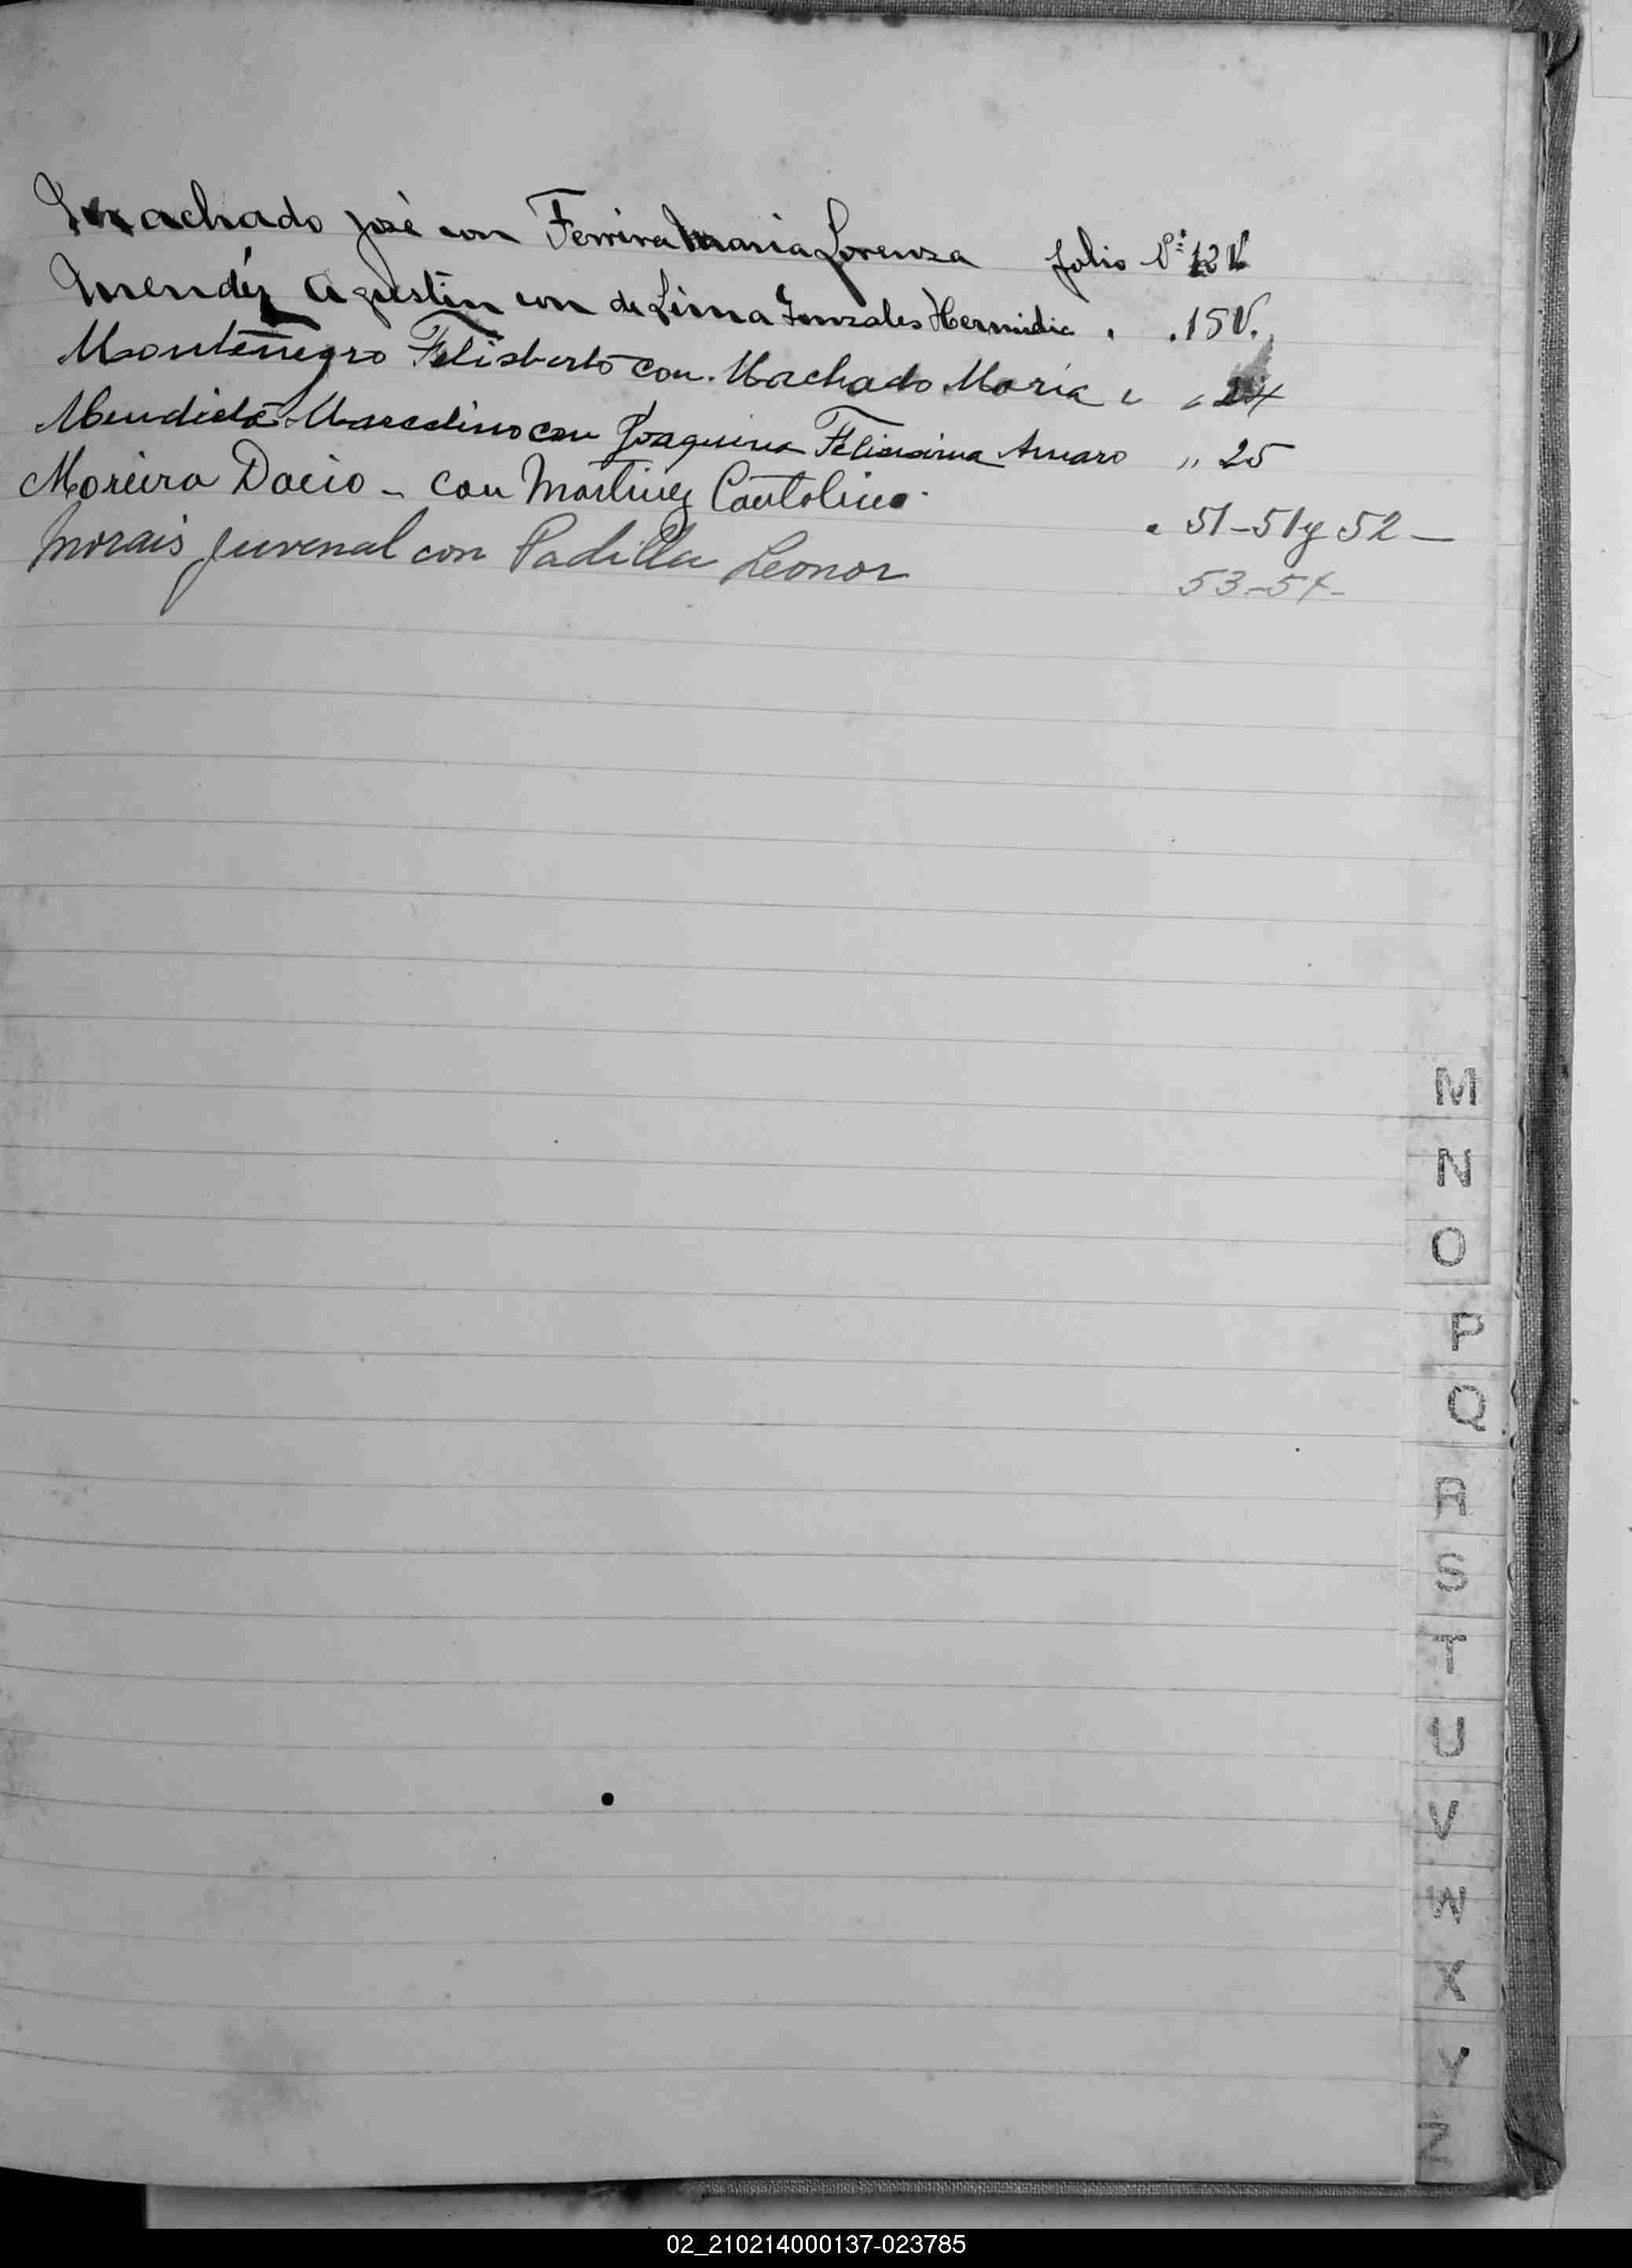 Machado José con Ferrira Maria Lorenza folio Nº 12 V
Mendéz Agustin con de Lima Gonzales Hermidia " " 15 V.
Montenegro Felisberto con Machado Maria " " 24
Mendieta Marcelino con Joaquina Felisisima Amaro " 25
Moreira Dacio - con Martinez Cantolina " 51-51 y 52 -
Morais Juvenal con Padilla Leonor 53-54-
M
N
O
P
Q
R
S
T
U
V
W
X
Y
Z
02_210214000137-023785